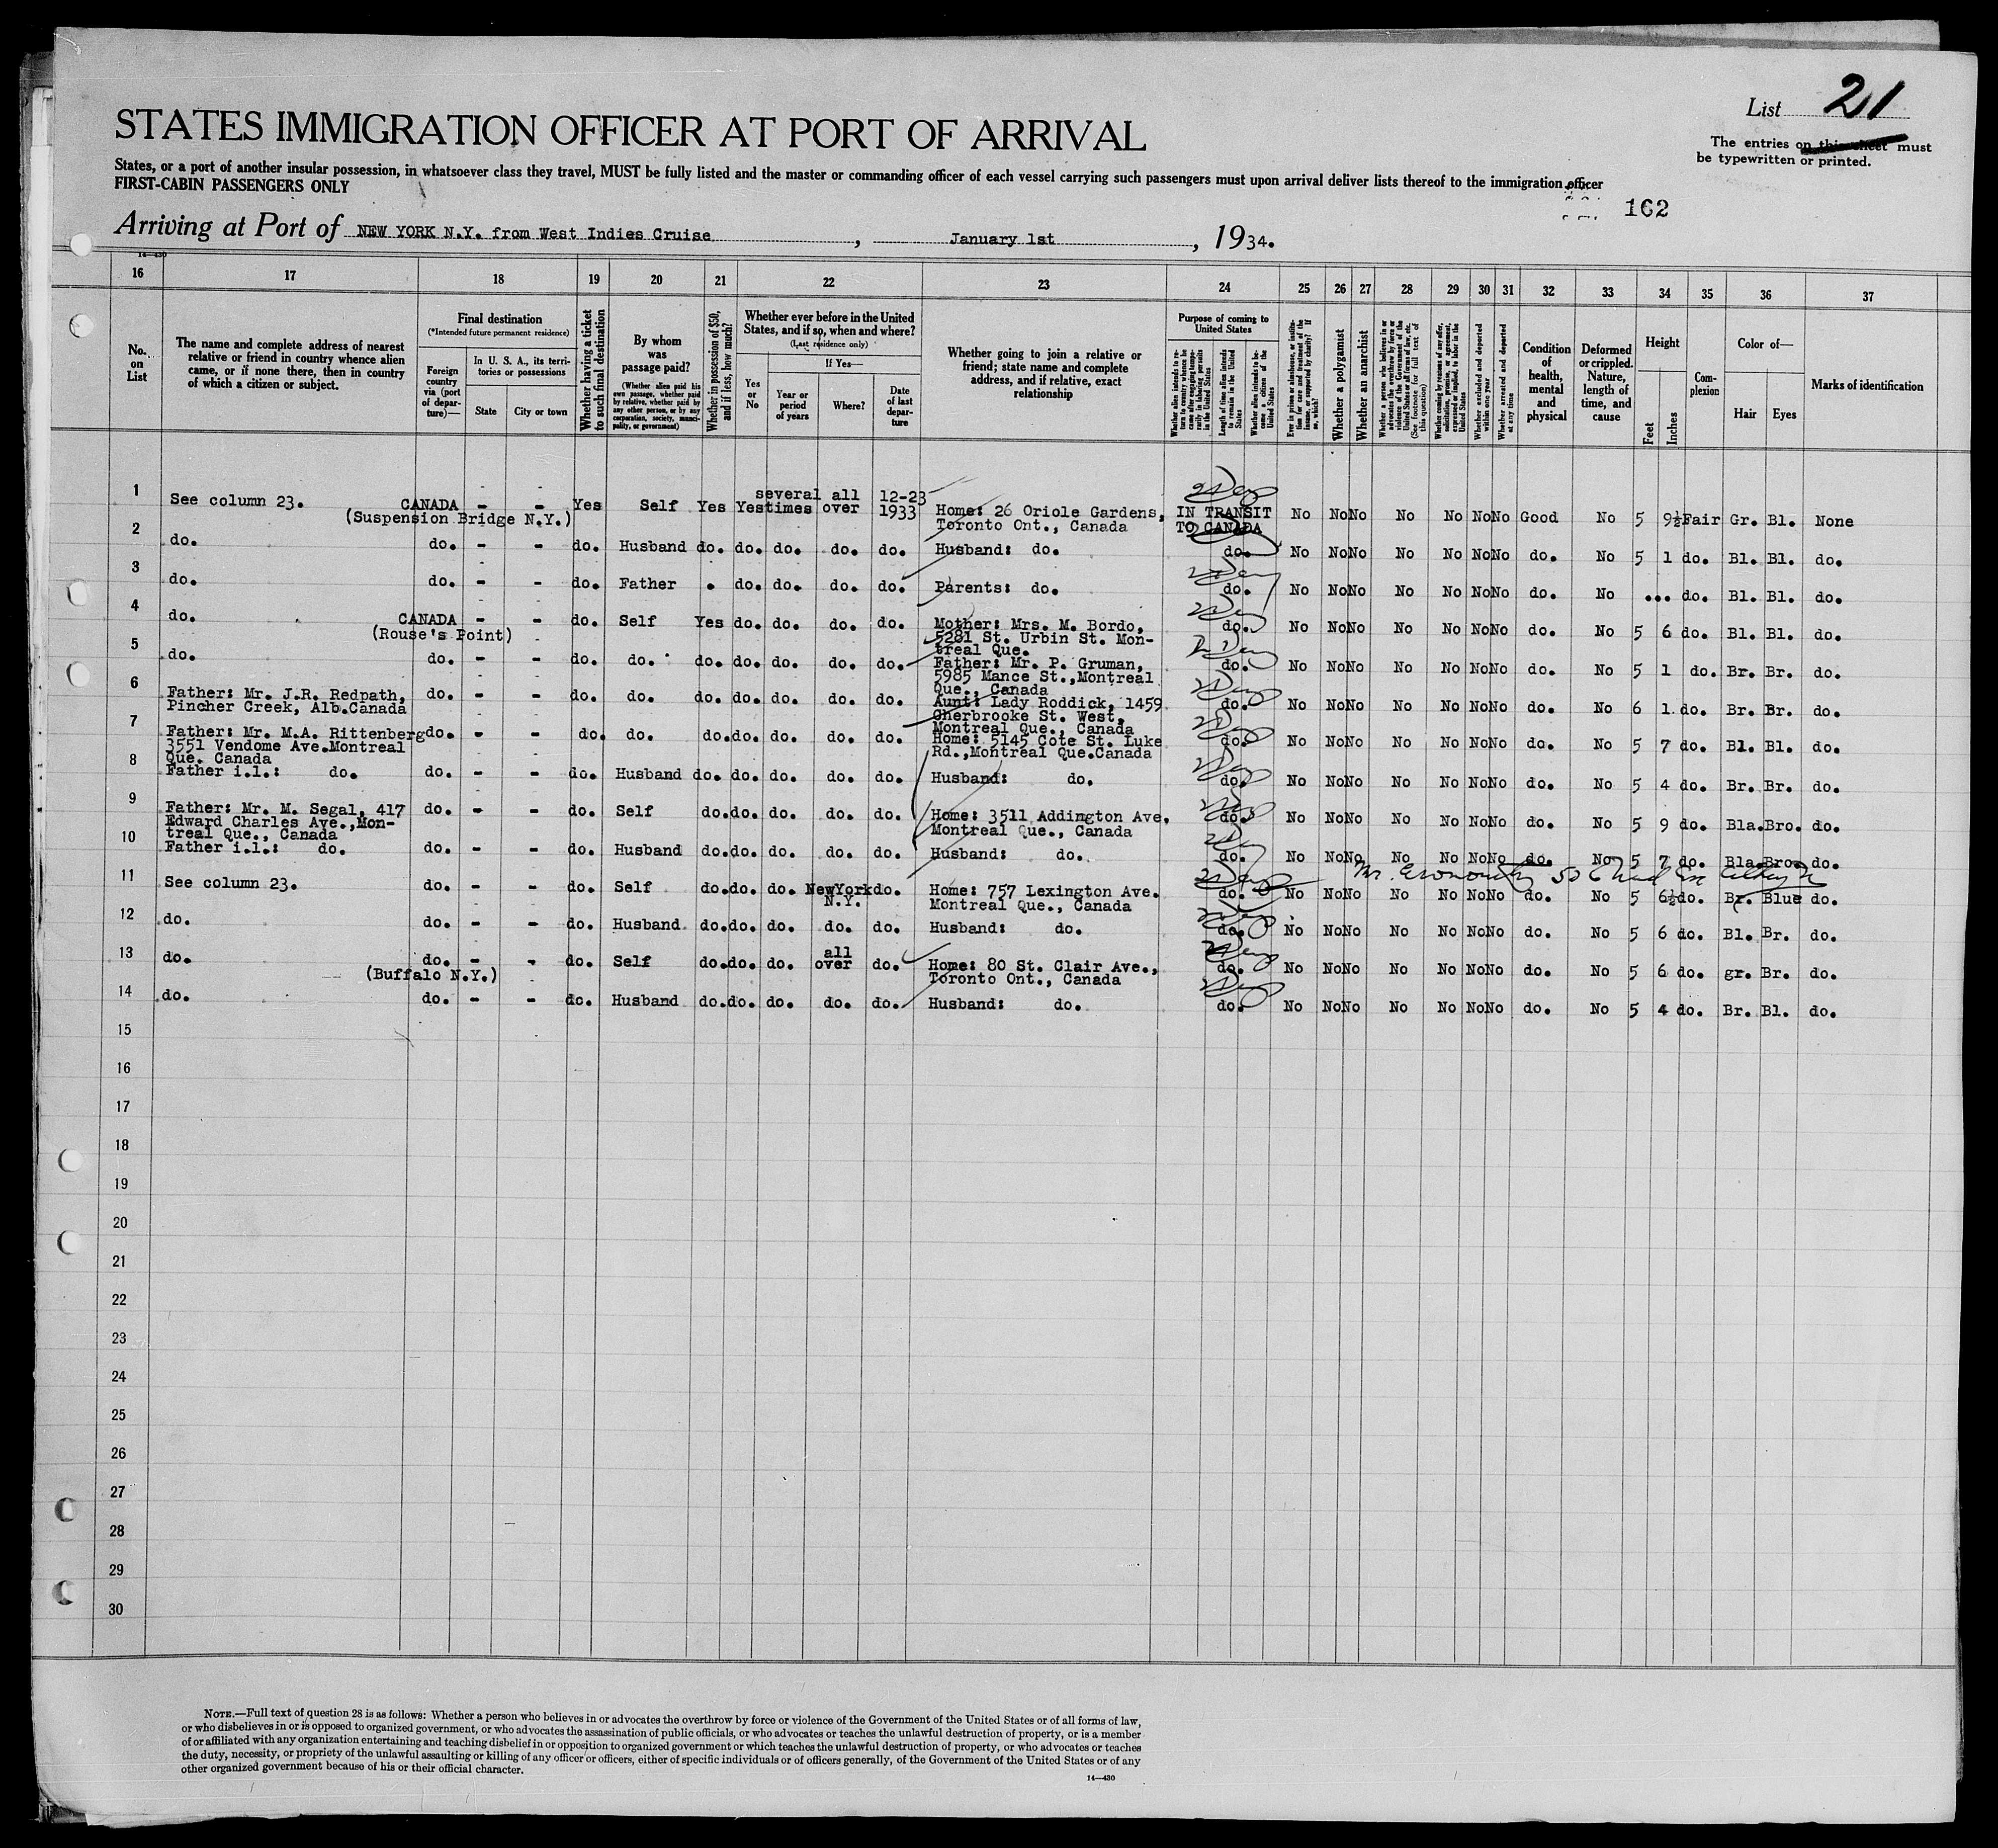 List 21
STATES IMMIGRATION OFFICER AT PORT OF ARRIVAL
The entries on this sheet must
be typewritten or printed.
States, or a port of another insular possession, in whatsoever class they travel, MUST be fully listed and the master or commanding officer of each vessel carrying such passengers must upon arrival deliver lists thereof to the immigration officer
FIRST-CABIN PASSENGERS ONLY
162
Arriving at Port of NEW YORK N.Y. from West Indies Cruise, January 1st, 1934.
14—430
16 17 18 19 20 21 22 23 24 25 26 27 28 29 30 31 32 33 34 35 36 37
No. on List
The name and complete address of nearest relative or friend in country whence alien came, or if none there, then in country of which a citizen or subject.
Final destination
(*Intended future permanent residence)
Foreign country via (port of departure)—
In U. S. A., its territories or possessions
State
City or town
Whether having a ticket to such final destination
By whom was passage paid?
(Whether alien paid his own passage, whether paid by relative, whether paid by any other person, or by any corporation, society, municipality, or government)
Whether in possession of $50, and if less, how much?
Whether ever before in the United States, and if so, when and where?
(Last residence only)
Yes or No
If Yes—
Year or period of years
Where?
Date of last departure
Whether going to join a relative or friend; state name and complete address, and if relative, exact relationship
Purpose of coming to United States
Whether alien intends to return to country whence he came after engaging temporarily in laboring pursuits in the United States
Length of time alien intends to remain in the United States
Whether alien intends to become a citizen of the United States
Ever in prison or almshouse, or institution for care and treatment of the insane, or supported by charity? If so, which?
Whether a polygamist
Whether an anarchist
Whether a person who believes in or advocates the overthrow by force or violence of the Government of the United States or all forms of law, etc. (See footnote for full text of this question)
Whether coming by reasons of any offer, solicitation, promise, or agreement, expressed or implied, to labor in the United States
Whether excluded and deported within one year
Whether arrested and deported at any time
Condition of health, mental and physical
Deformed or crippled. Nature, length of time, and cause
Height
Feet
Inches
Complexion
Color of—
Hair
Eyes
Marks of identification
1 See column 23. CANADA - - Yes Self Yes Yes several times all over 12-23 1933 Home: 26 Oriole Gardens, IN TRANSIT No No No No No No No Good No 5 9½ Fair Gr. Bl. None
(Suspension Bridge N.Y.) Toronto Ont., Canada TO CANADA
2 do. do. - - do. Husband do. do. do. do. do. Husband: do. do. No No No No No No No do. No 5 1 do. Bl. Bl. do.
3 do. do. - - do. Father . do. do. do. do. Parents: do. do. No No No No No No No do. No ... do. Bl. Bl. do.
4 do. CANADA - - do. Self Yes do. do. do. do. Mother: Mrs. M. Bordo, do. No No No No No No No do. No 5 6 do. Bl. Bl. do.
(Rouse's Point) 5281 St. Urbin St. Mon-
treal Que.
5 do. do. - - do. do. do. do. do. do. do. Father: Mr. P. Gruman, do. No No No No No No No do. No 5 1 do. Br. Br. do.
5985 Mance St.,Montreal
Que., Canada
6 Father: Mr. J.R. Redpath, do. - - do. do. do. do. do. do. do. Aunt: Lady Roddick, 1459 do. No No No No No No No do. No 6 1 do. Br. Br. do.
Pincher Creek, Alb.Canada Cherbrooke St. West,
Montreal Que., Canada
7 Father: Mr. M.A. Rittenberg do. - - do. do. do. do. do. do. do. Home: 5145 Cote St. Luke do. No No No No No No No do. No 5 7 do. Bl. Bl. do.
3551 Vendome Ave.Montreal Rd.,Montreal Que.Canada
Que. Canada
8 Father i.l.: do. do. - - do. Husband do. do. do. do. do. Husband: do. do. No No No No No No No do. No 5 4 do. Br. Br. do.
9 Father: Mr. M. Segal, 417 do. - - do. Self do. do. do. do. do. Home: 3511 Addington Ave. do. No No No No No No No do. No 5 9 do. Bla. Bro. do.
Edward Charles Ave.,Mon- Montreal Que., Canada
treal Que., Canada
10 Father i.l.: do. do. - - do. Husband do. do. do. do. do. Husband: do. do. No No No No No No No do. No 5 7 do. Bla. Bro. do.
11 See column 23. do. - - do. Self do. do. do. NewYork N.Y. do. Home: 757 Lexington Ave. do. No No No No No No No do. No 5 6½ do. Br. Blue do.
Montreal Que., Canada
12 do. do. - - do. Husband do. do. do. do. do. Husband: do. do. No No No No No No No do. No 5 6 do. Bl. Br. do.
13 do. do. - - do. Self do. do. do. all over do. Home: 80 St. Clair Ave., do. No No No No No No No do. No 5 6 do. gr. Br. do.
(Buffalo N.Y.) Toronto Ont., Canada
14 do. do. - - do. Husband do. do. do. do. do. Husband: do. do. No No No No No No No do. No 5 4 do. Br. Bl. do.
15
16
17
18
19
20
21
22
23
24
25
26
27
28
29
30
NOTE.—Full text of question 28 is as follows: Whether a person who believes in or advocates the overthrow by force or violence of the Government of the United States or of all forms of law,
or who disbelieves in or is opposed to organized government, or who advocates the assassination of public officials, or who advocates or teaches the unlawful destruction of property, or is a member
of or affiliated with any organization entertaining and teaching disbelief in or opposition to organized government or which teaches the unlawful destruction of property, or who advocates or teaches
the duty, necessity, or propriety of the unlawful assaulting or killing of any officer or officers, either of specific individuals or of officers generally, of the Government of the United States or of any
other organized government because of his or their official character.
14—430